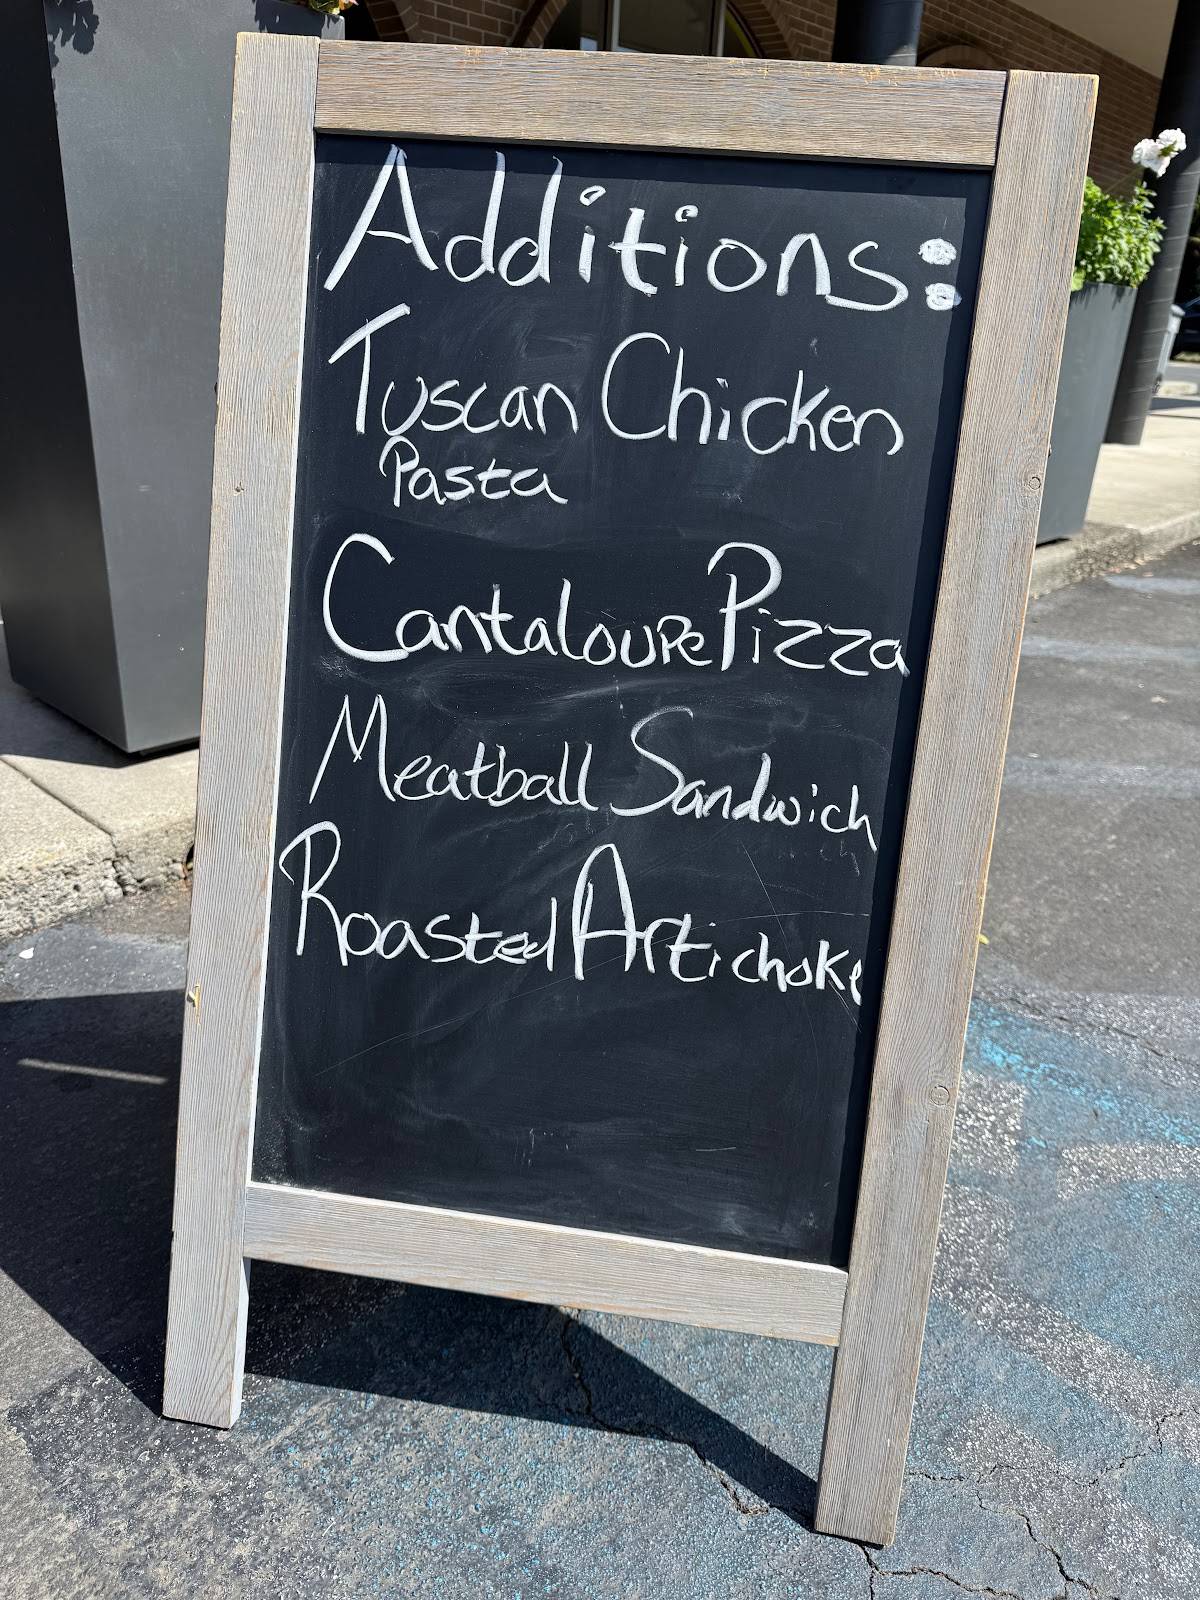 Additions:
Tuscan Chicken
Pasta
Cantaloupe Pizza
Meatball Sandwich
Roasted Artichoke